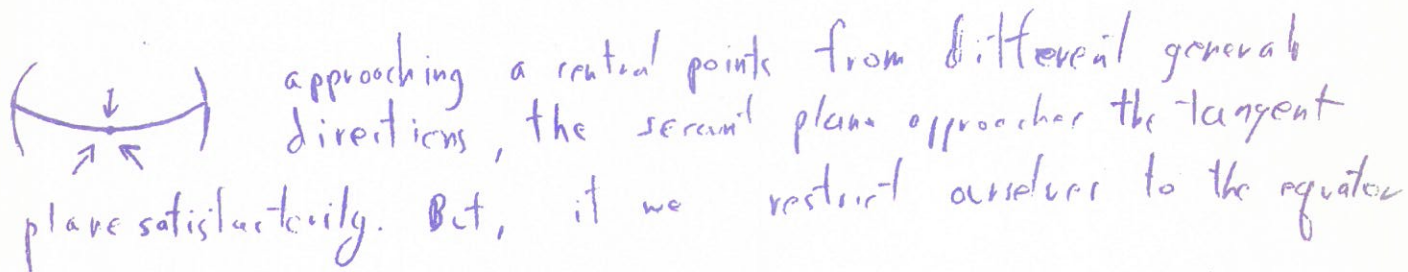 approaching a central points from different general
directions, the secant plane approaches the tangent
plane satisfactorily. But, if we restrict ourselves to the equator